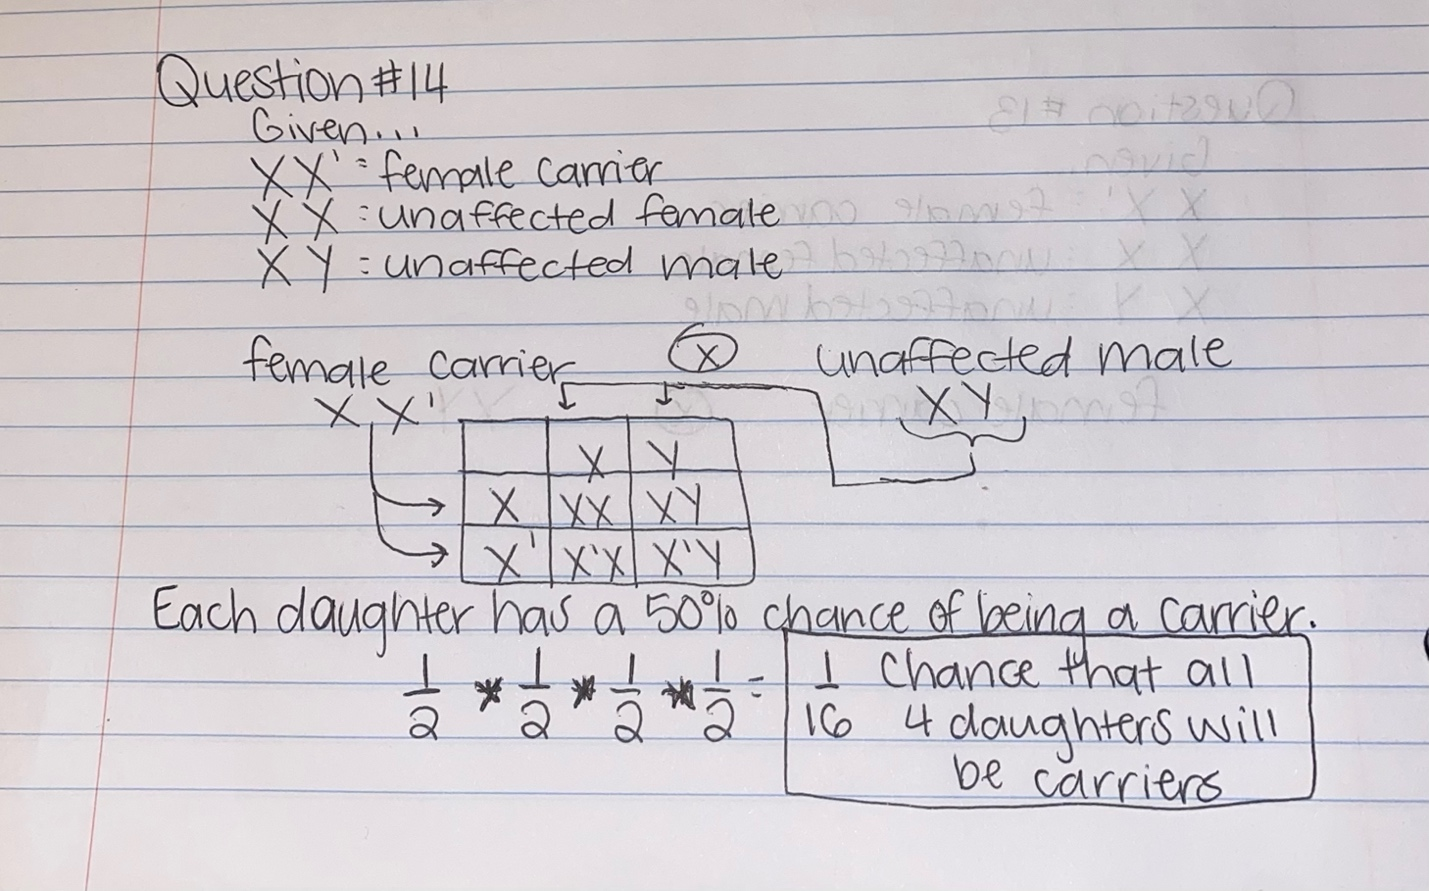 Question #14
Given...
XX' = female carrier
XX = unaffected female
XY = unaffected male
female carrier (x) unaffected male
X X' XY
X Y
X XX XY
X' X'X X'Y
Each daughter has a 50% chance of being a carrier.
1/2 * 1/2 * 1/2 * 1/2 = 1/16 chance that all
4 daughters will
be carriers